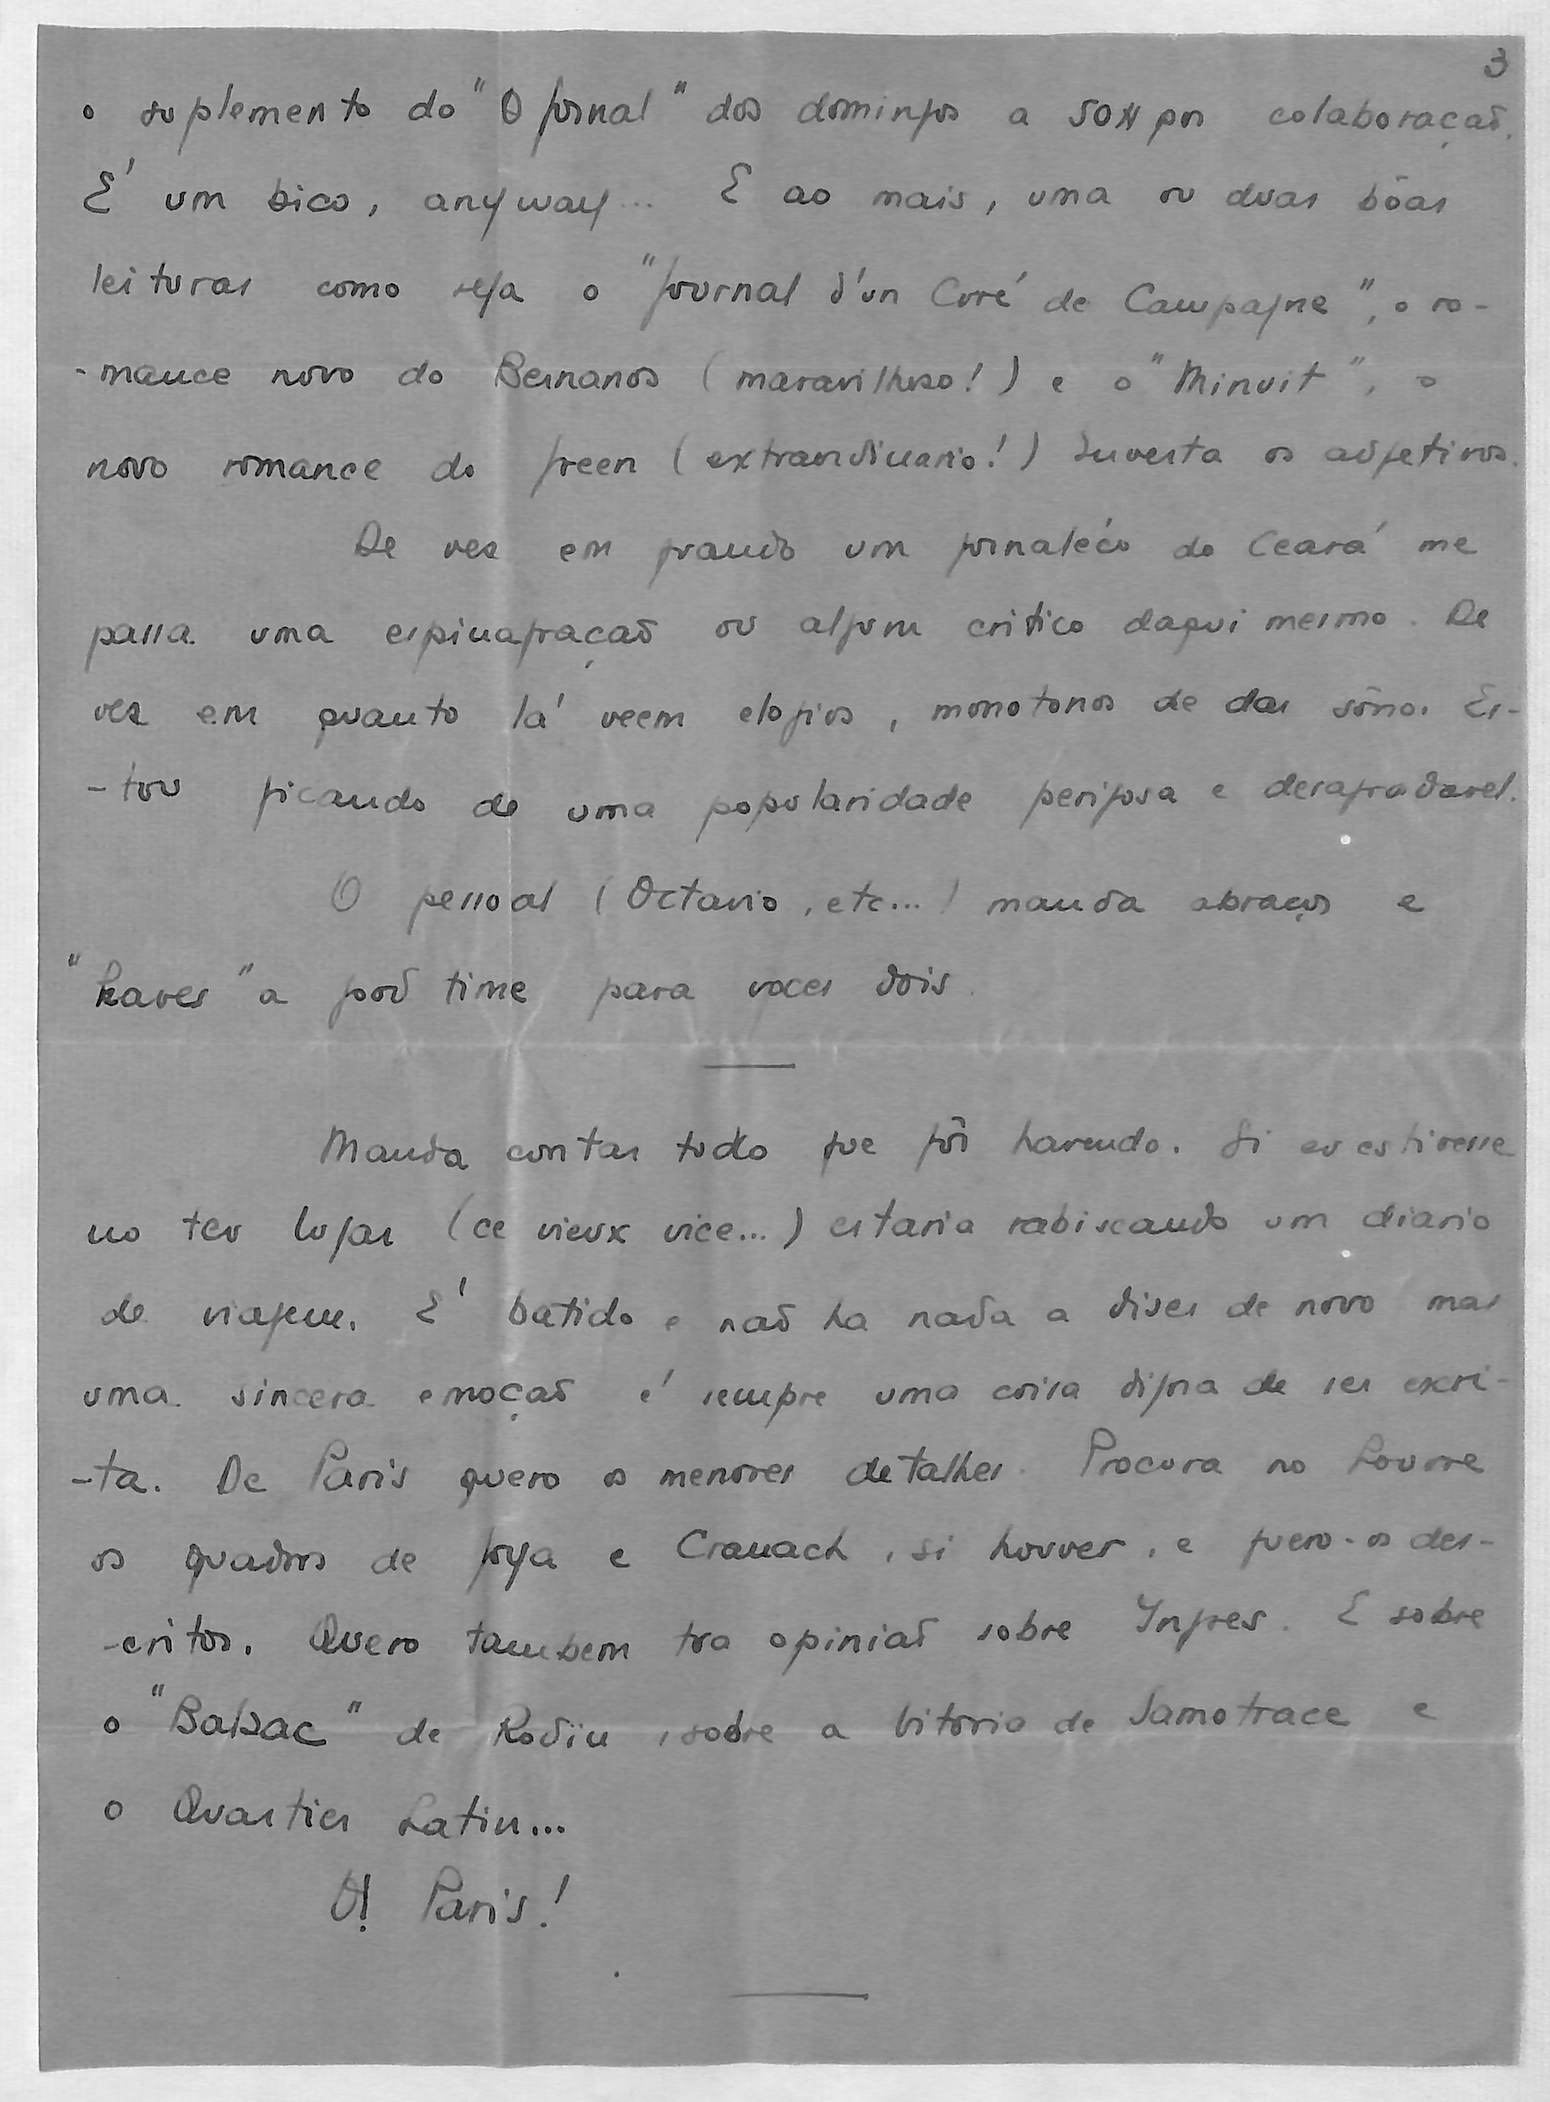 3
o suplemento do "O Jornal" dos domingos a 50$ por colaboração.
E' um bico, anyway... E ao mais, uma ou duas bôas
leituras como seja o "Journal d'un Curé de Campagne", o ro-
-mance novo do Bernanos (maravilhoso!) e o "Minuit", o
novo romance do Green (extraordinario!) Inverta os adjetivos.
De vez em quando um jornaléco do Ceará me
passa uma espinafração ou algum critico daqui mesmo. De
vez em quanto lá veem elogios, monotonos de dar sôno. Es-
-tou ficando de uma popularidade perigosa e desagradavel.
O pessoal (Octavio, etc...) manda abraços e
"haves" a good time para voces dois.
Manda contar tudo que fôr havendo. Si eu estivesse
no teu lugar (ce vieux vice...) estaria rabiscando um diario
de viagem. E' batido e não ha nada a dizer de novo mas
uma sincera emoção é sempre uma coisa digna de ser escri-
-ta. De Paris quero os menores detalhes. Procura no Louvre
os quadros de Goya e Cranach, si houver, e quero-os des-
-critos. Quero tambem tua opinião sobre Yngres. E sobre
o "Balzac" de Rodin, sobre a Vitoria de Samotrace e
o Quartier Latin...
O! Paris!